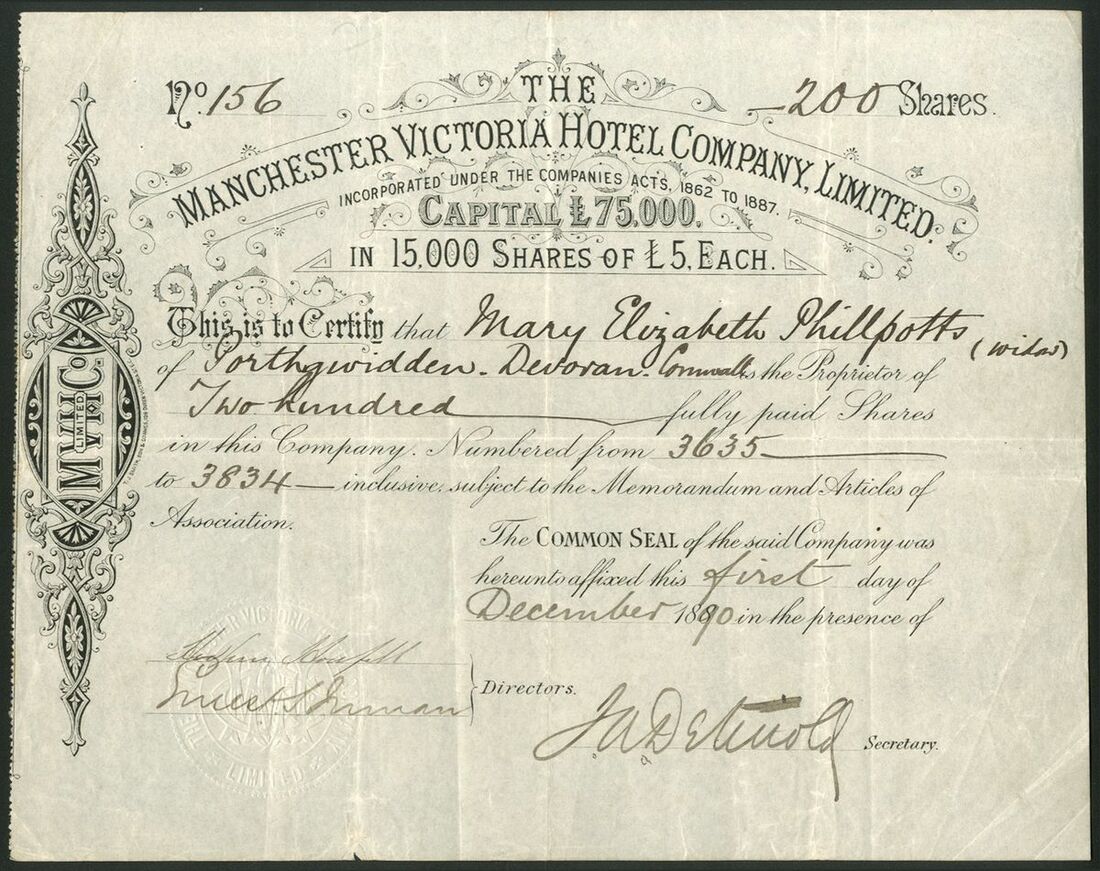 No. 156
200 Shares.
THE
MANCHESTER VICTORIA HOTEL COMPANY, LIMITED.
INCORPORATED UNDER THE COMPANIES ACTS, 1862 TO 1887.
CAPITAL £75,000.
IN 15,000 SHARES OF £5, EACH.
This is to Certify that Mary Elizabeth Phillpotts (widow)
of Porthgwidden. Devoran. Cornwall is the Proprietor of
Two hundred fully paid Shares
in this Company. Numbered from 3635
to 3834 inclusive, subject to the Memorandum and Articles of
Association.
The COMMON SEAL of the said Company was
hereunto affixed this first day of
December 1890 in the presence of
Directors.
Secretary.
M.V.H. Co.
LIMITED
LIMITED